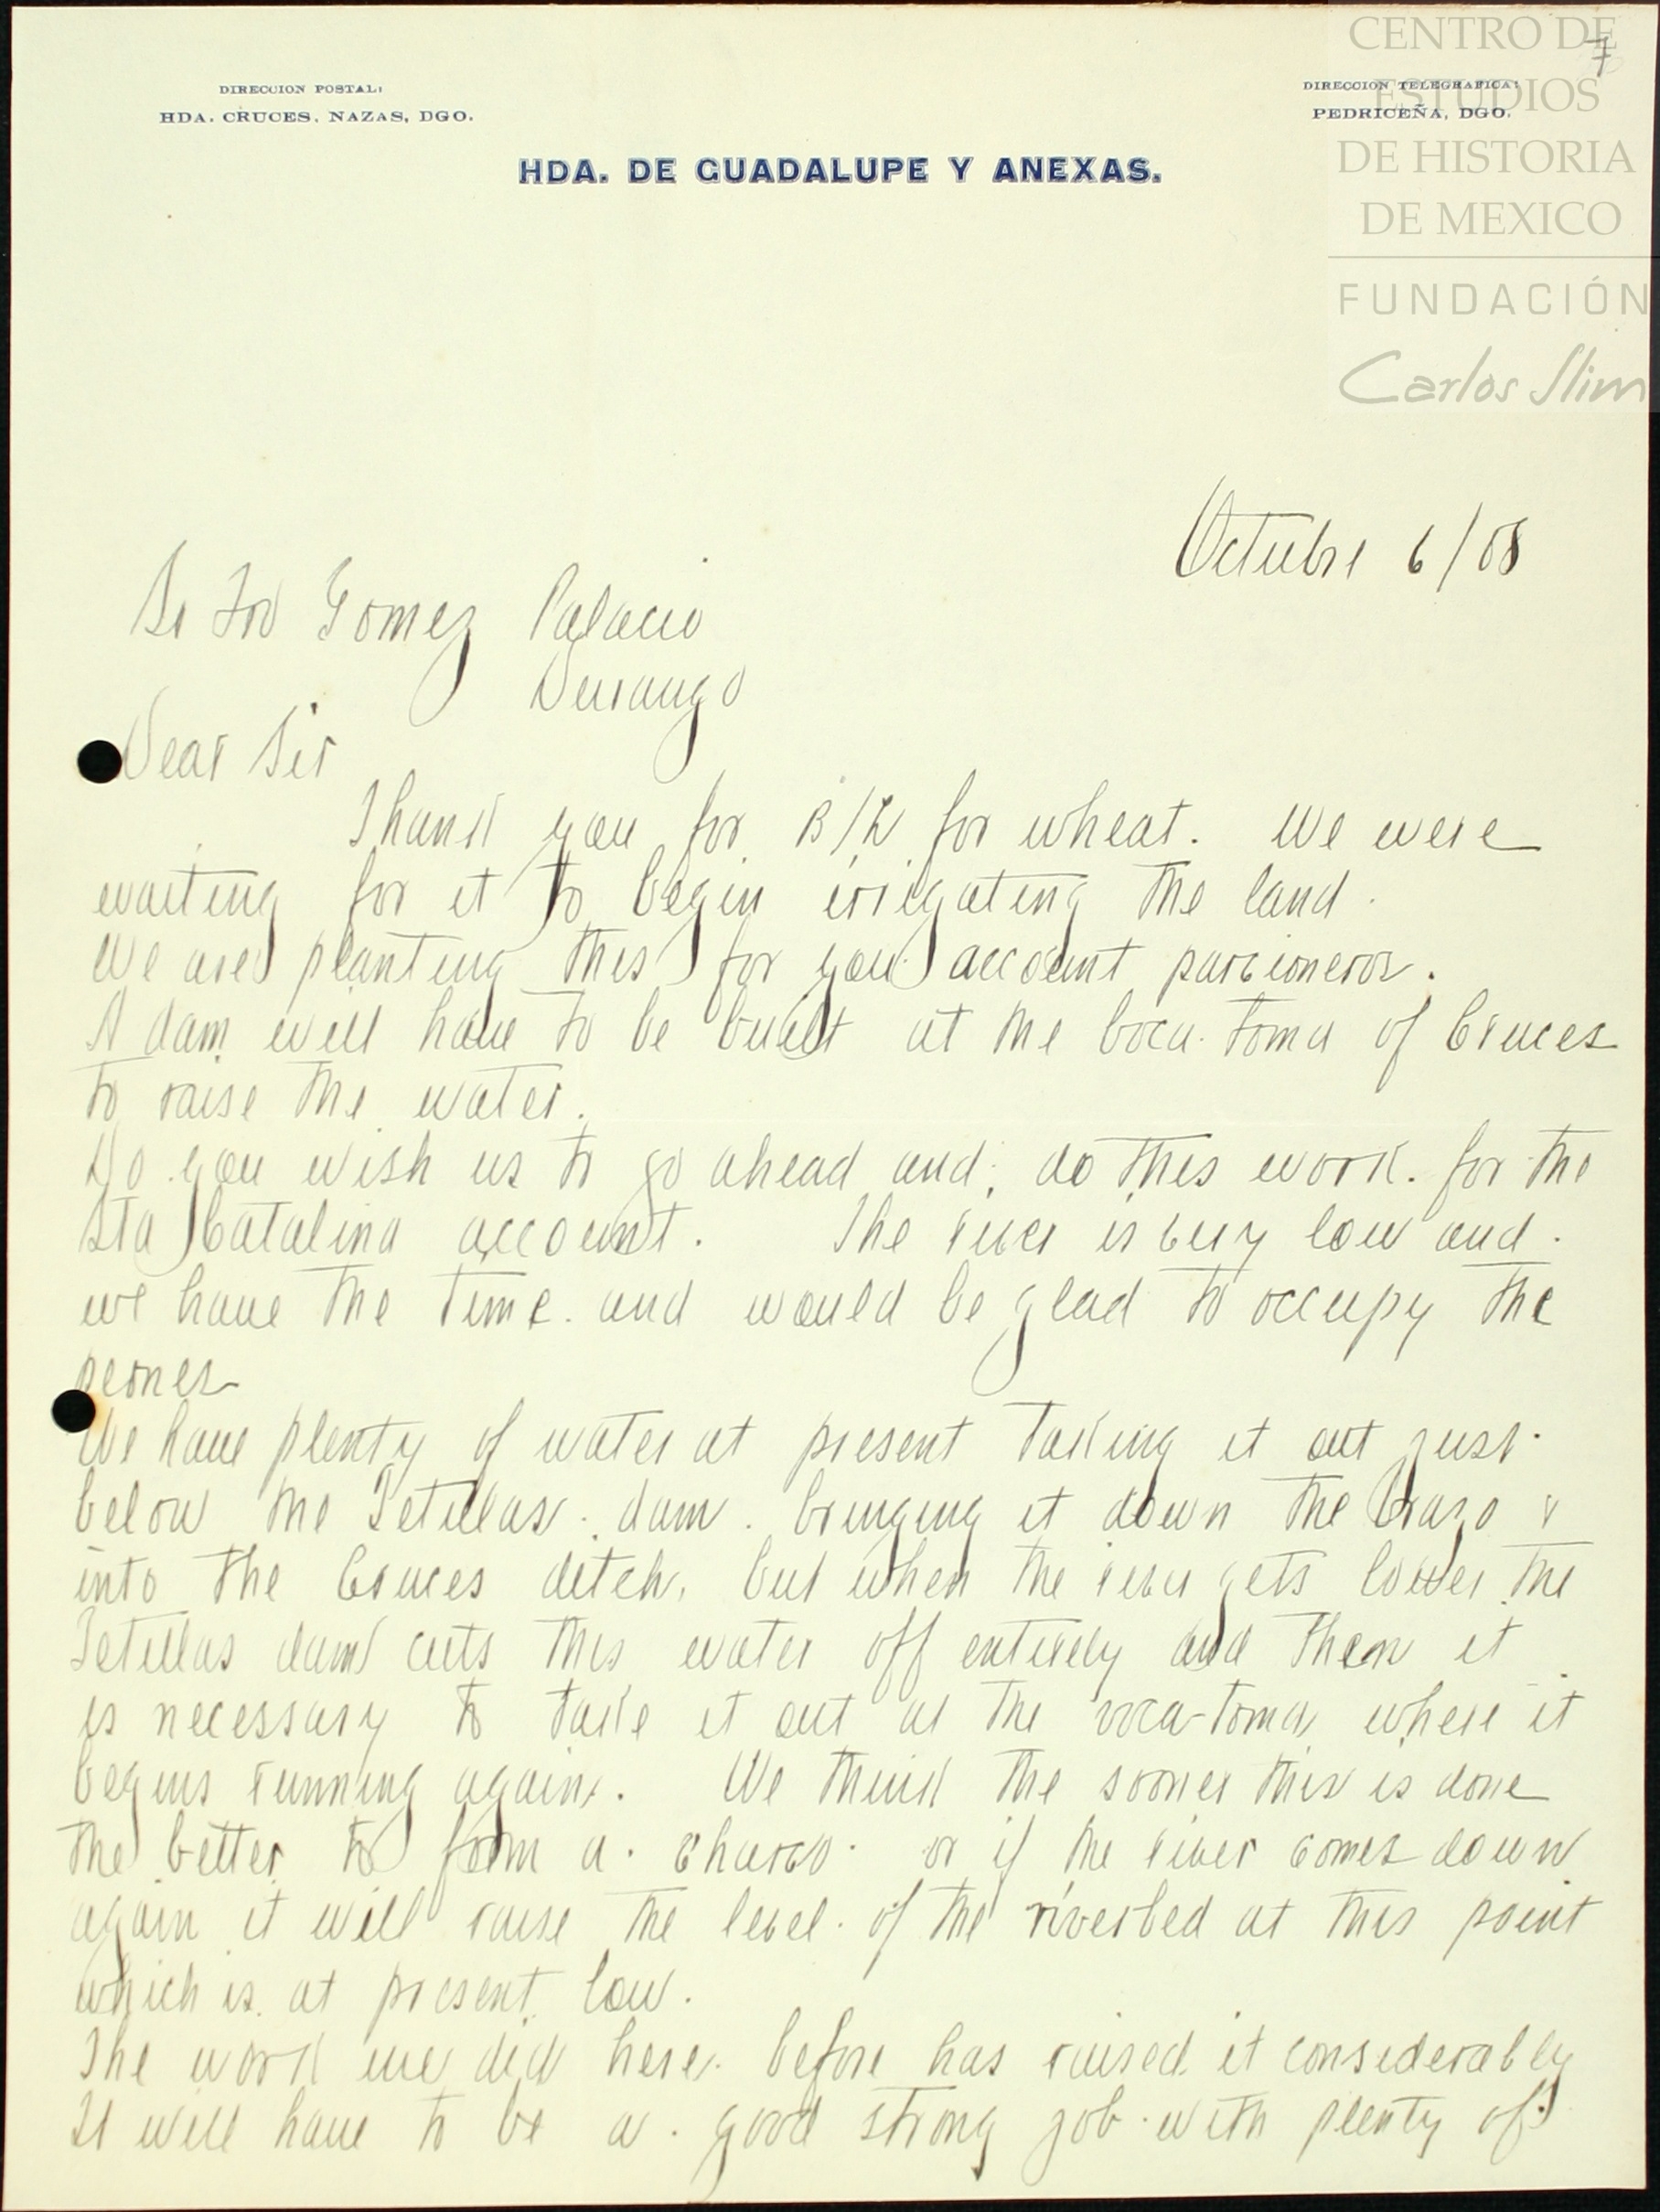 CENTRO DE
ESTUDIOS
DE HISTORIA
DE MEXICO
FUNDACIÓN
Carlos Slim
7
DIRECCION POSTAL:
HDA. CRUCES, NAZAS, DGO.
DIRECCION TELEGRAFICA:
PEDRICEÑA, DGO.
HDA. DE GUADALUPE Y ANEXAS.
Octubre 6/08
Sr Gomez Palacio
Durango
Dear Sir
Thank you for B/L for wheat. We were
waiting for it to begin irrigating the land.
We are planting this for your account parcioneros.
A dam will have to be built at the boca-toma of Cruces
to raise the water.
Do you wish us to go ahead and do this work for the
Sta Catalina account. The river is very low and
we have the time and would be glad to occupy the
peones
We have plenty of water at present taking it out just
below the Tetillas dam bringing it down the brazo &
into the Cruces ditch, but when the river gets lower the
Tetillas dam cuts this water off entirely and then it
is necessary to take it out at the voca-toma where it
begins running again. We think the sooner this is done
the better to form a charco or if the river comes down
again it will raise the level of the riverbed at this point
which is at present low.
The work we did here before has raised it considerably
It will have to be a good strong job with plenty of